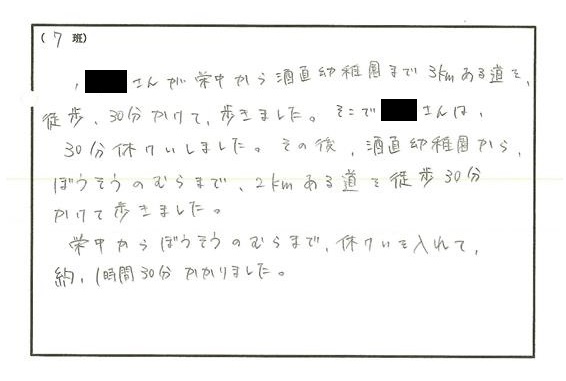 (7 班)
, さんが栄中から酒直幼稚園まで3kmある道を,
徒歩、30分かけて、歩きました。そこで さんは,
30分休けいしました。その後、酒直幼稚園から,
ぼうそうのむらまで、2kmある道を徒歩30分
かけて歩きました。
栄中からぼうそうのむらまで,休けいを入れて,
約,1時間30分かかりました。